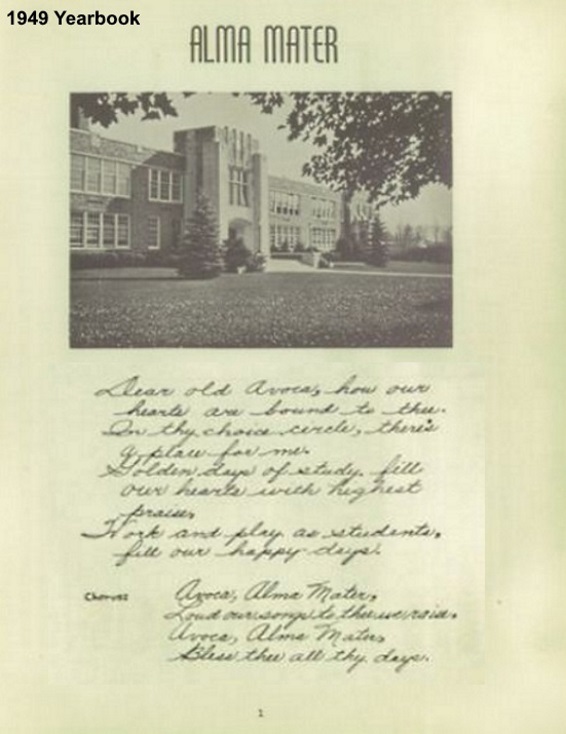 1949 Yearbook
ALMA MATER
Dear old Avoca, how our
hearts are bound to thee.
In thy choice circle, there's
a place for me.
Golden days of study fill
our hearts with highest
praise,
Work and play as students,
fill our happy days.
Chorus: Avoca, Alma Mater,
Loud our songs to thee we raise.
Avoca, Alma Mater,
Bless thee all thy days.
1